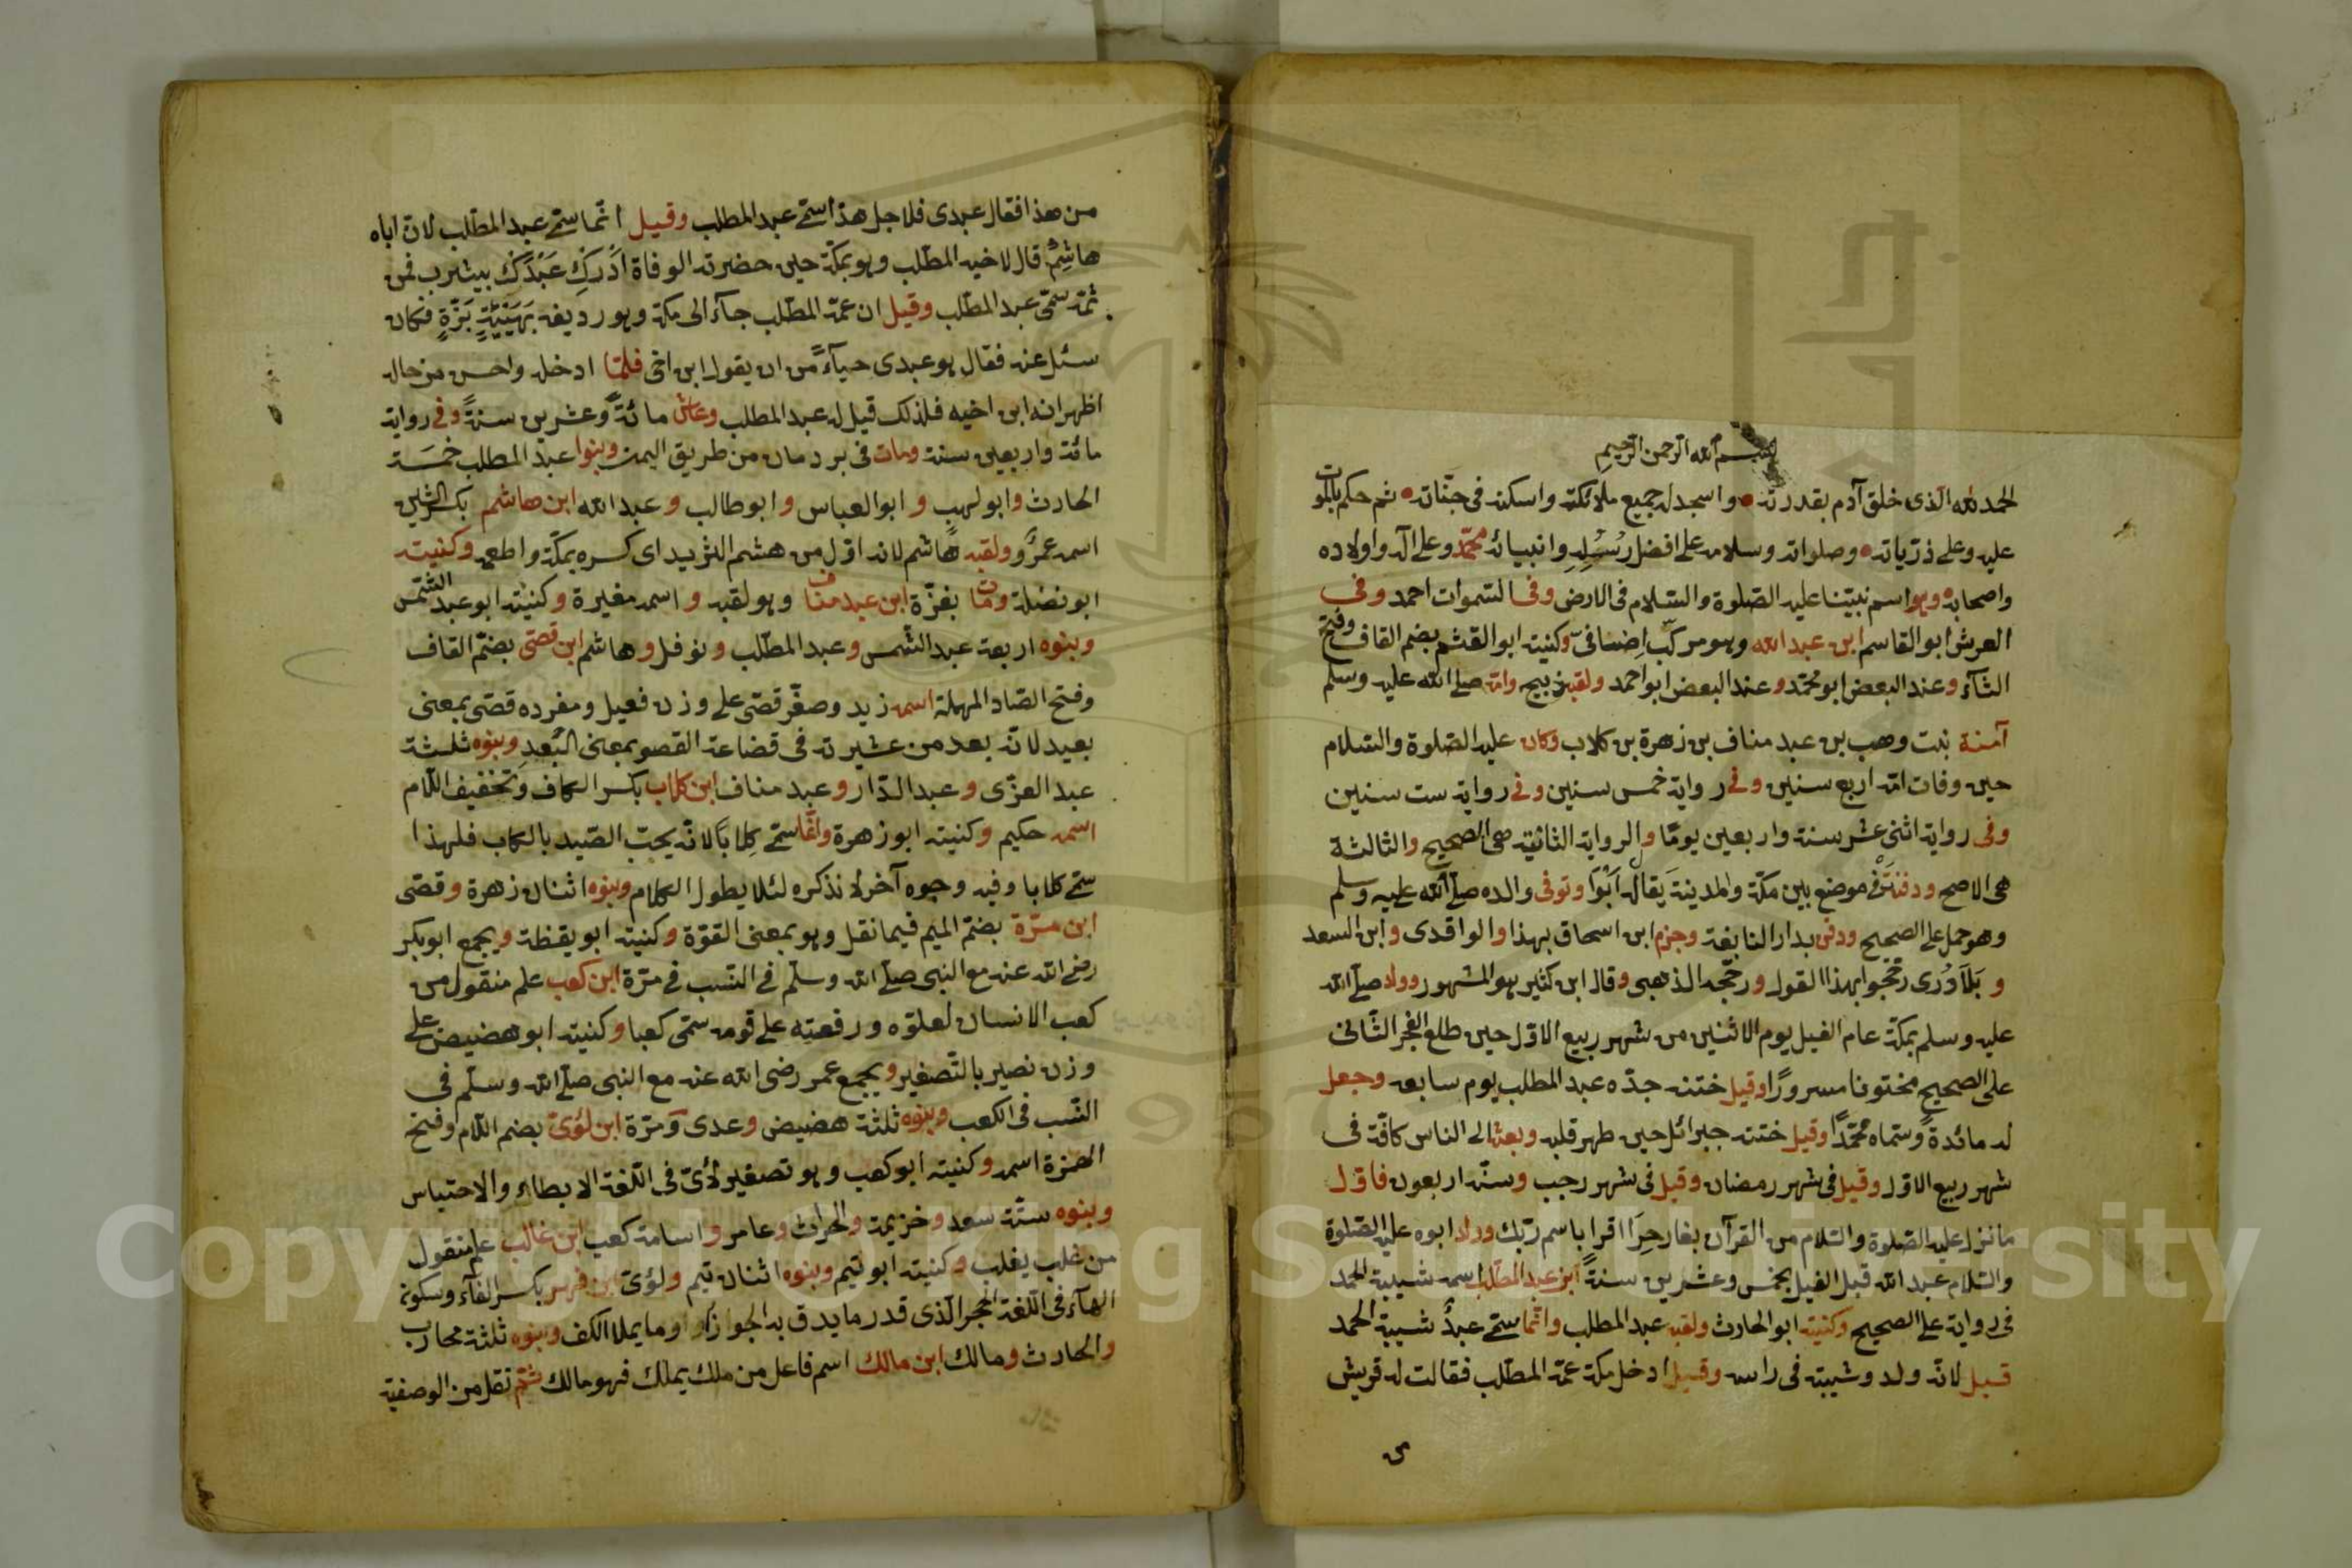 بسم الله الرحمن الرحيم
الحمد لله الذى خلق آدم بقدرته واسجد له جميع ملائكته واسكنه فى جنّاته ثم حكم بالموت
عليه وعلى ذرّياته وصلواته وسلامه على افضل رُسُلِهِ وانبيائه محمّد وعلى آله واولاده
واصحابه وهو اسم نبيّنا عليه الصّلوة والسّلام فى الارض وفى السّموات احمد وفى
العرش ابو القاسم ابن عبد الله وهو مركّب اِضافىّ وكنيته ابو القثم بضم القاف وفتح
الثآء وعند البعض ابو محمّد وعند البعض ابو احمد ولقبه ذبيح وامّه صلى الله عليه وسلم
آمنة بنت وهب بن عبد مناف بن زهرة بن كلاب وكان عليه الصّلوة والسّلام
حين وفات امّه اربع سنين وفى رواية خمس سنين وفى رواية ست سنين
وفى رواية اثنى عشر سنة واربعين يومًا والرواية الثانية هى الصحيح والثالثة
هى الاصح ودفنَتْ فى موضع بين مكّة والمدينة يقال له اَبْوَا وتوفى والده صلى الله عليه وسلم
وهو حمل على الصحيح ودفن بدار النابغة وجزم ابن اسحاق بهذا والواقدى وابن السعد
و بَلَاَذُرى رجّحوا بهذا القول ورجّحه الذهبى وقال ابن كثير هو المشهور وولد صلى الله
عليه وسلم بمكّة عام الفيل يوم الاثنين من شهر ربيع الاوّل حين طلع الفجر الثّانى
على الصحيح مختونا مسرورًا وقيل ختنه جدّه عبد المطلب يوم سابعه وجعل
له مائدةً وسمّاه محمّدًا وقيل ختنه جبرائل حين طهر قلبه وبعث الى الناس كافّة فى
شهر ربيع الاوّل وقيل فى شهر رمضان وقيل فى شهر رجب وسنّه اربعون فاوّل
ما نزل عليه الصّلوة والسّلام من القرآن بغار حِرَا اقرا باسم ربّك وولد ابوه عليه الصّلوة
والسّلام عبد الله قبل الفيل بخمس وعشرين سنةً ابن عبد المطّلب اسمه شيبة الحمد
فى رواية على الصحيح وكنيته ابو الحارث ولقبه عبد المطلب وانّما سمّى عبدُ شيبة الحمد
قيل لانّه ولد وشيبته فى راسه وقيل ادخل مكّة عمّه المطّلب فقالت له قريش
من هذا فقال عبدى فلاجل هذا سمّى عبد المطلب وقيل انّما سمّى عبد المطّلب لانّ اباه
هاشِمُ قال لاخيه المطّلب وهو بمكّة حين حضرته الوفاة اَدْرِكْ عَبْدَكَ بيثرب فمن
ثمّه سمّى عبد المطّلب وقيل ان عمّه المطّلب جآء الى مكّة وهو رديفه بِهَيْئَةٍ بَزَّةٍ فكان
سئل عنه فقال هو عبدى حيآءً من ان يقول ابن اخى فلمّا ادخله واحسن من حاله
اظهر انه ابن اخيه فلذلك قيل له عبد المطلب وعاش مائةً وعشرين سنةً وفى رواية
مائة واربعين سنة ومات فى بردمان من طريق اليمن وبنوا عبد المطلب خمسَة
الحارث وابو لهب و ابو العباس و ابو طالب و عبد الله ابن هاشم بكسر الشين
اسمه عمرٌو ولقبه هاشم لانه اوّل من هشم الثريد اى كسره بمكّة واطعمه وكنيته
ابو نضلة ومات بغزّة ابن عبد مناف وهو لقبه و اسمه مغيرة وكنيته ابو عبد الشّمس
وبنوه اربعة عبد الشّمس وعبد المطّلب ونوفل وهاشم ابن قصّى بضمّ القاف
وفتح الصّاد المهملة اسمه زيد وصغّر قصّى على وزن فعيل ومفرده قصّى بمعنى
بعيد لانّه بعد من عشيرته فى قضاعة القصو بمعنى البُعدِ وبنوه ثلثة
عبد العزّى وعبد الدّار وعبد مناف ابن كلاب بكسر الكاف وتخفيف اللّام
اسمه حكيم وكنيته ابو زهرة وانّما سمّى كِلابًا لانّه يحبّ الصّيد بالكلاب فلهذا
سمّى كلابا وفيه وجوه آخر لا نذكره لئلا يطول الكلام وبنوه اثنان زهرة وقصّى
ابن مرّة بضمّ الميم فيما نقل وهو بمعنى القوّة وكنيته ابو يقظة ويجمع ابو بكر
رضى الله عنه مع النبى صلى الله وسلّم فى النسب فى مرّة ابن كعب علم منقول من
كعب الانسان لعلوّه ورفعته على قومه سمّى كعبا وكنيته ابو هضيض على
وزن نصير بالتّصغير ويجمع عمر رضى الله عنه مع النبى صلى الله وسلّم فى
النّسب فى الكعب وبنوه ثلثة هضيض وعدى ومرّة ابن لؤىّ بضم اللّام وفتح
الهمزة اسمه وكنيته ابو كعب وهو تصغير لأىّ فى اللّغة الابطاء والاحتباس
وبنوه ستّة سعد وخزيمة والحارث وعامر و اسامة كعب ابن غالب علم منقول
من غلب يغلب وكنيته ابو تيم وبنوه اثنان تيم ولؤىّ ابن فهر بكسر الفآء وسكون
الهآء فى اللّغة الحجر الّذى قدر ما يدقّ به الجواز او ما يملا الكف وبنوه ثلثة محارب
والحارث ومالك ابن مالك اسم فاعل من ملك يملك فهو مالك ثمّ نقل من الوصفيّة
Copyright © King Saud University
1957